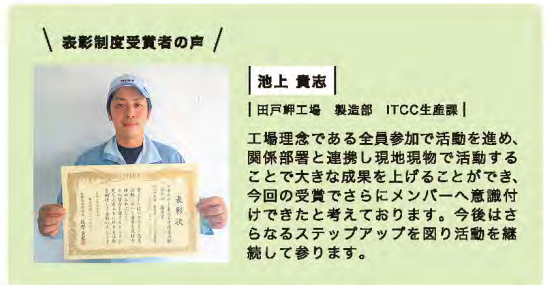 表彰制度受賞者の声
池上 貴志
田戸岬工場 製造部 ITCC生産課
工場理念である全員参加で活動を進め、
関係部署と連携し現地現物で活動するこ
とで大きな成果を上げることができ、
今回の受賞でさらにメンバーへ意識付
けできたと考えております。今後はさ
らなるステップアップを図り活動を継
続して参ります。
表彰状